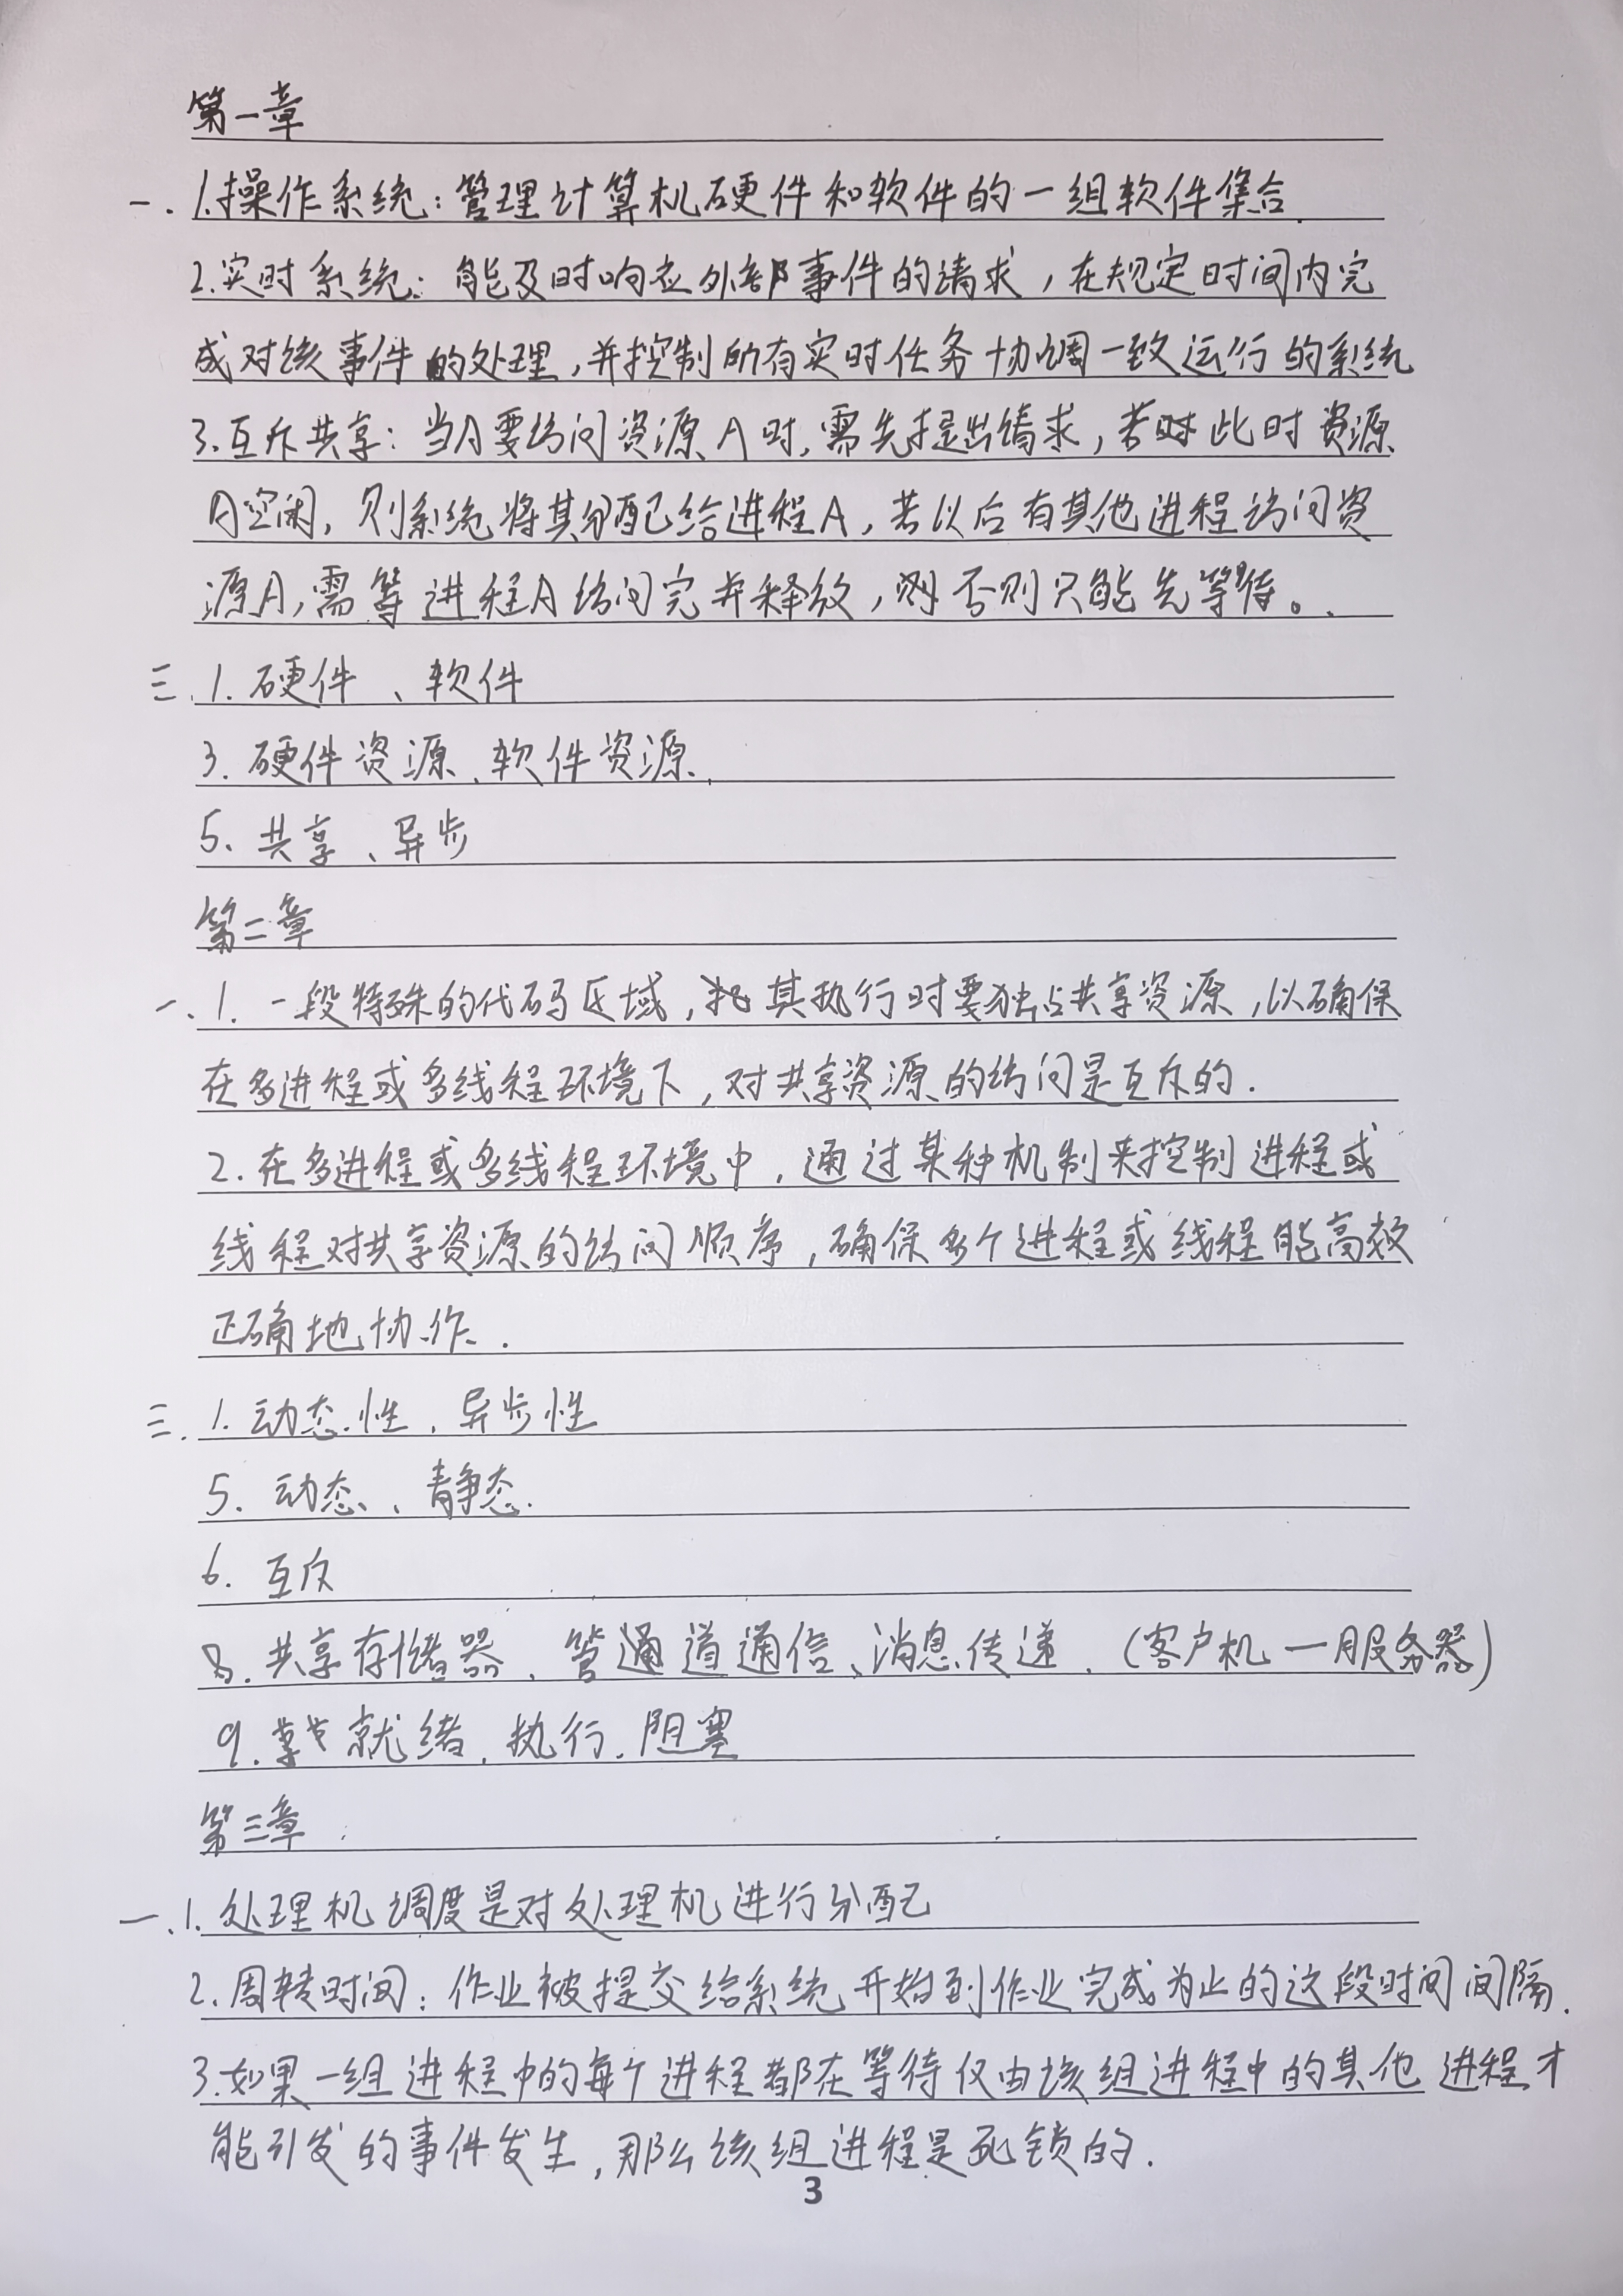 第一章
一.1.操作系统：管理计算机硬件和软件的一组软件集合.
2.实时系统：能及时响应外部事件的请求，在规定时间内完
成对该事件的处理，并控制所有实时任务协调一致运行的系统
3.互斥共享：当A要访问资源A时，需先提出请求，若此时资源
A空闲，则系统将其分配给进程A，若以后有其他进程访问资
源A，需等进程A访问完并释放，否则只能先等待。
三.1.硬件、软件
3.硬件资源、软件资源.
5.共享、异步
第二章
一、1.一段特殊的代码区域，其执行时要独占共享资源，以确保
在多进程或多线程环境下，对共享资源的访问是互斥的.
2.在多进程或多线程环境中，通过某种机制来控制进程或
线程对共享资源的访问顺序，确保多个进程或线程能高效
正确地协作.
三.1.动态性、异步性
5.动态、静态.
6.互斥
8.共享存储器、管道通信、消息传递、(客户机—服务器)
9.就绪、执行、阻塞
第三章
一.1.处理机调度是对处理机进行分配
2.周转时间：作业被提交给系统开始到作业完成为止的这段时间间隔.
3.如果一组进程中的每个进程都在等待仅由该组进程中的其他进程才
能引发的事件发生，那么该组进程是死锁的.
3